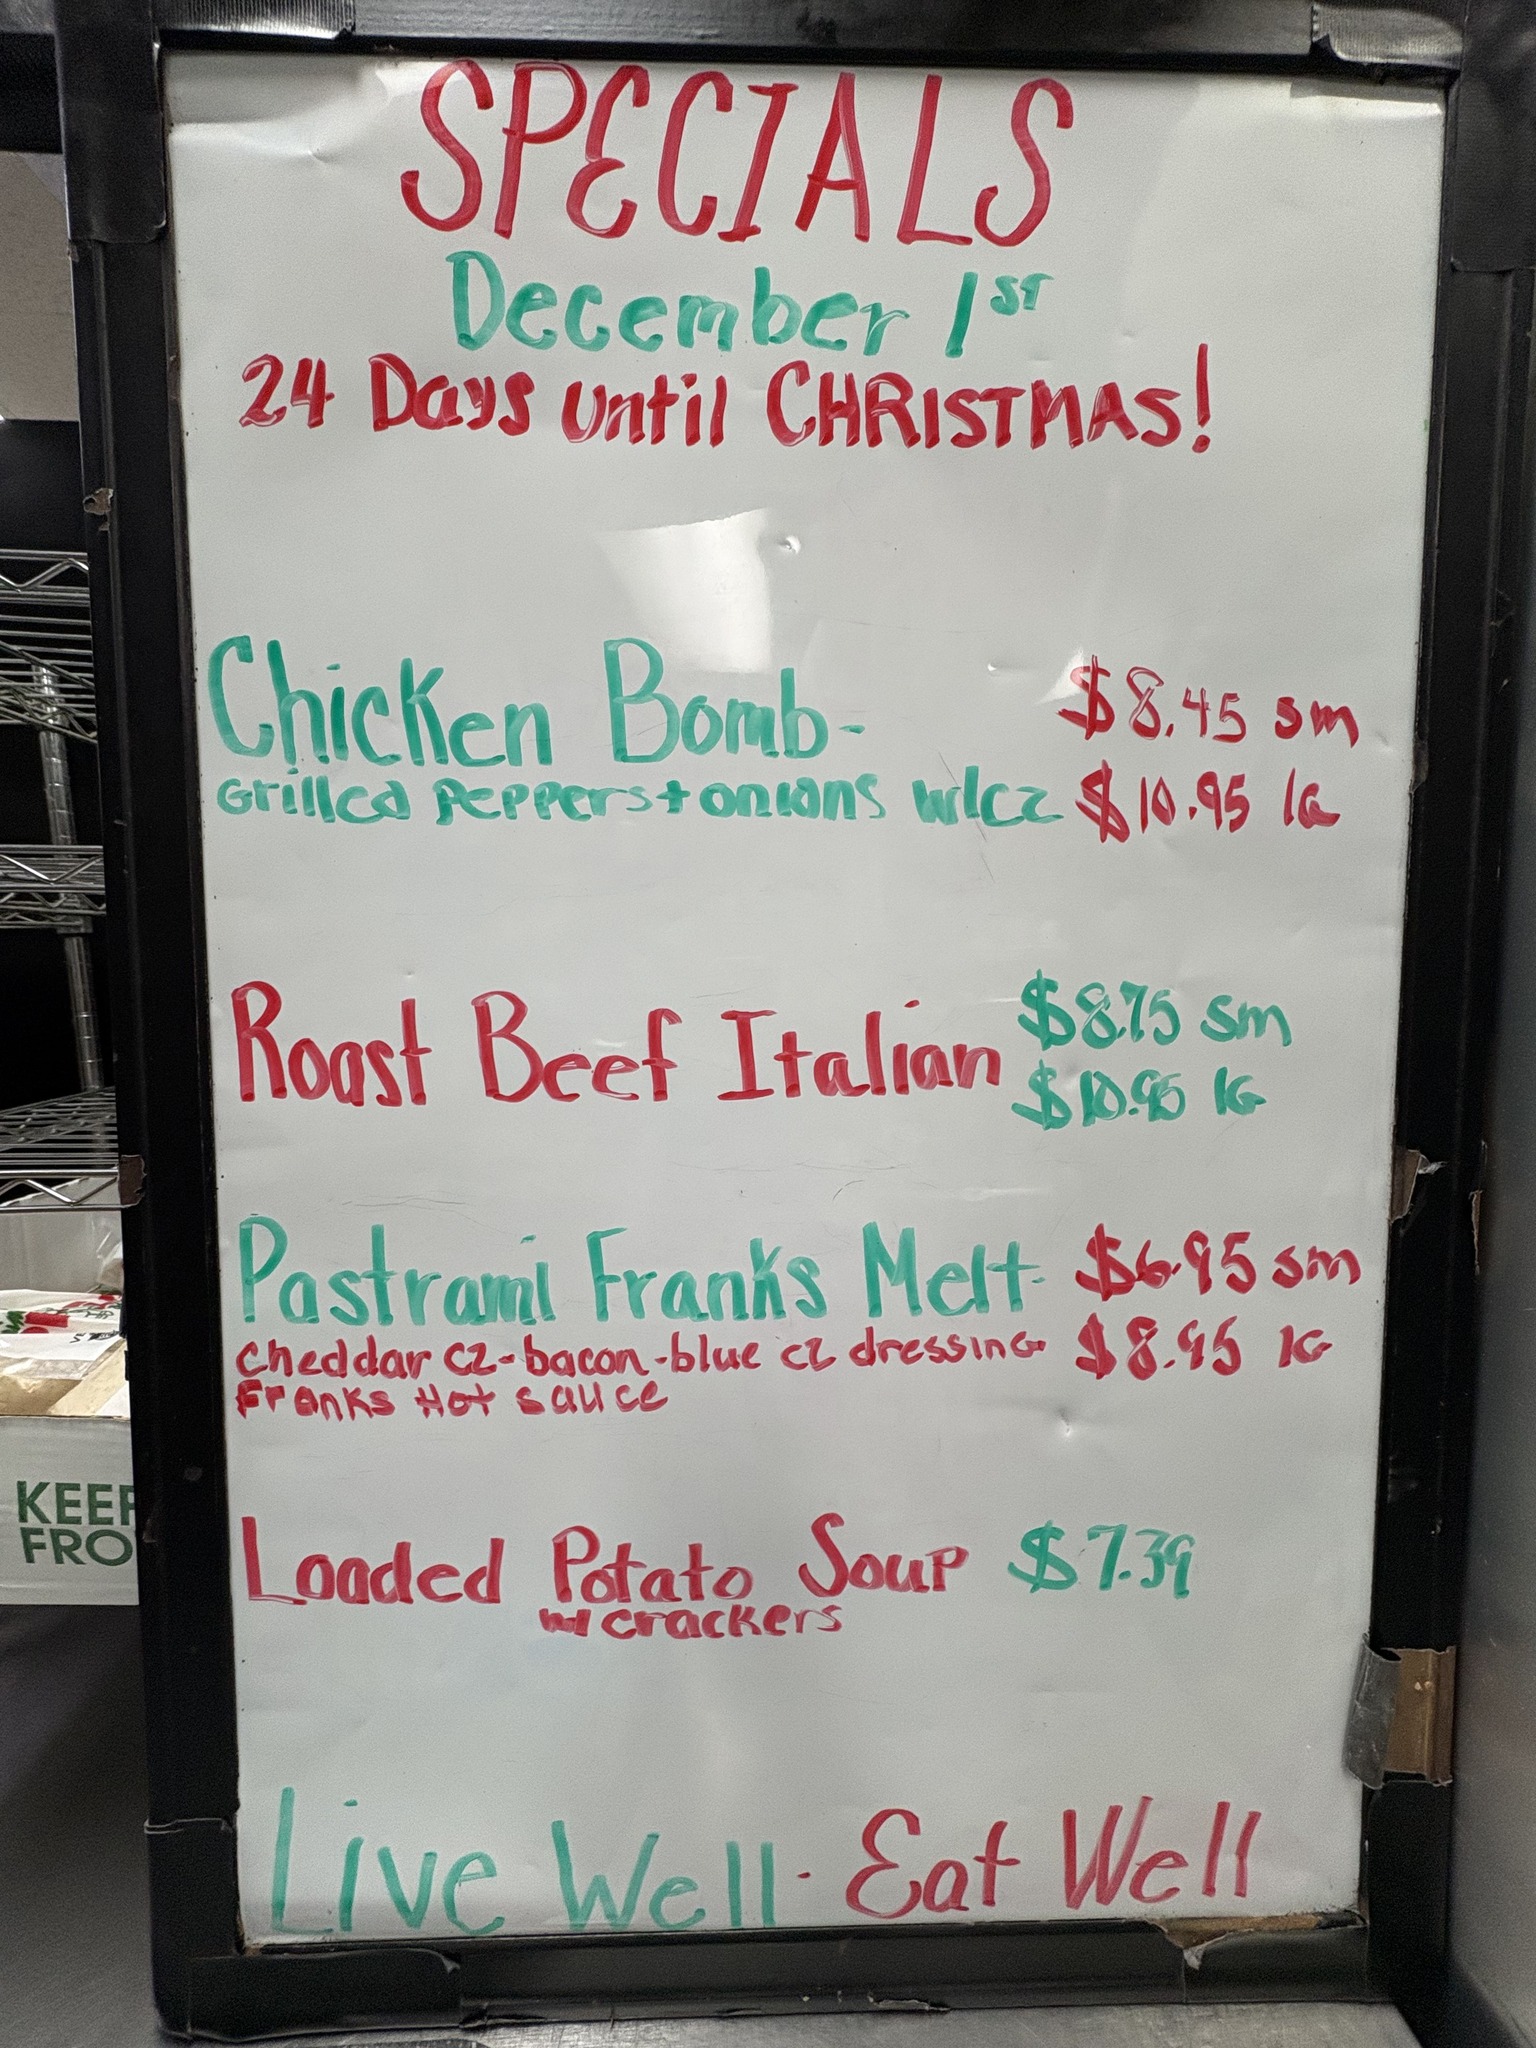 SPECIALS
December 1ST
24 Days until CHRISTMAS!
Chicken Bomb-
$8.45 sm
Grilled peppers + onions w/cz
$10.95 lG
Roast Beef Italian
$8.75 sm
$10.95 lG
Pastrami Franks Melt-
$6.95 sm
cheddar cz-bacon-blue cz dressing
$8.95 lG
Franks Hot sauce
Loaded Potato Soup $7.39
w/ crackers
Live Well · Eat Well
KEEP
FRO